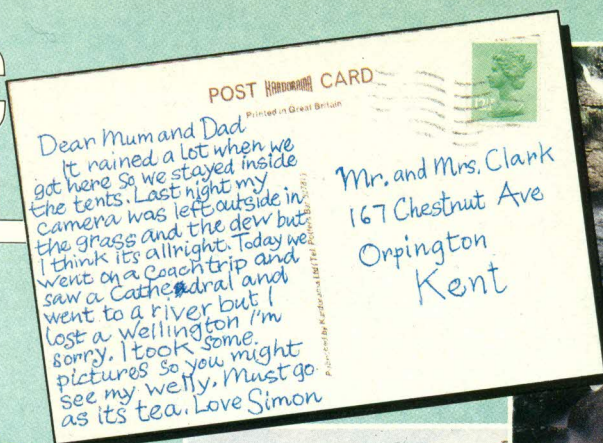 POST KARDORAMA CARD
Printed in Great Britain
Dear Mum and Dad
It rained a lot when we
got here so we stayed inside
the tents. Last night my
camera was left outside in
the grass and the dew but
I think its allright. Today we
went on a Coach trip and
saw a Cathedral and
went to a river but I
lost a wellington I'm
sorry. I took some.
pictures so you might
see my welly. Must go
as its tea. Love Simon
Mr. and Mrs. Clark
167 Chestnut Ave
Orpington
Kent